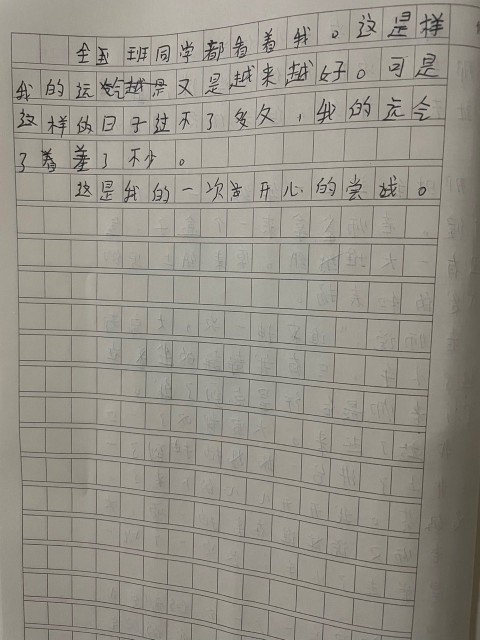 全班同学都看着我。这是样
我的运气越是又是越来越好。可是
这样的日子过不了多久，我的运令
了着差了不少。
这是我的一次开心的尝战。